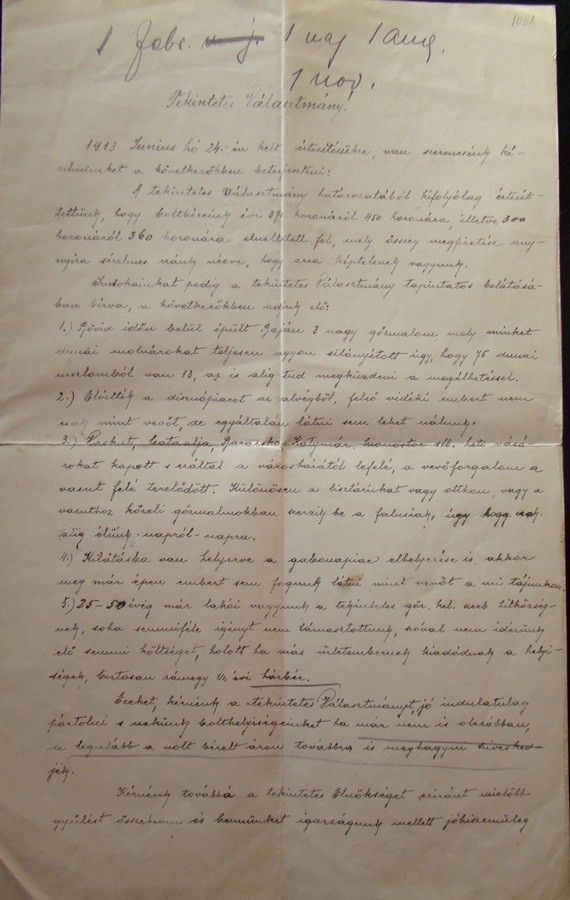 1001
1 Febr. 1 maj 1 aug.
1 nov.
Tekintetes Választmány!
1913 Junius hó 24.-én kelt értesitésükre, van szerencsénk ké-
relmünket a következőkben beterjeszteni:
A tekintetes Választmány határozatából kifolyólag értesit-
tettünk, hogy boltbéreink évi 370 koronáról 450 koronára, illetve 300
koronáról 360 koronára emeltetett fel, mely összeg megfizetése any-
nyira sérelmes reánk nézve, hogy arra képtelenek vagyunk.
Indokainkat pedig a tekintetes Választmány tapintatos belátásá-
ban bízva, a következőkben adjuk elő:
1.) Rövid időn belül épült Baján 3 nagy gőzmalom mely minket
dunai molnárokat teljesen agyon silányitott úgy, hogy 75 dunai
malomból van 13, az is alig tud megküzdeni a megélhetéssel.
2.) Elvitték a disznópiacot az alvégből, felső vidéki embert nem
csak mint vevőt, de egyáltalán látni sem lehet nálunk.
3.) Bátaalja, Garacska, Katymár, stb. heti vásá-
rokat kapott s ezáltal a városházától lefelé, a vevőforgalom a
vasut felé terelődött. Különösen a lisztárúkat vagy otthon, vagy a
vasuthoz közeli gőzmalmokban szerzik be a falusiak, úgy hogy csak
alig élünk napról-napra.
4.) Kilátásba van helyezve a gabonapiac elhelyezése is akkor
meg már épen embert sem fogunk látni mint vevőt a mi tájunkon.
5.) 25-50 évig már lakói vagyunk a tekintetes gör. kel. szerb hitközség-
nek, soha semmiféle igényt nem támasztottunk, szóval nem idéztünk
elő semmi költséget, holott ha más üzletembernek kiadódnak a helyi-
ségek, biztosan rámegy 1/2 évi házbér.
Ezeket, kérnénk a tekintetes Választmányt, jó indulatulag
pártolni s nekünk bolthelyiségeinket ha már nem is olcsóbban,
de legalább a volt bérelt áron továbbra is meghagyni sziveskedj-
jék.
Kérnénk továbbá a tekintetes Elnökséget eziránt mielőbb
gyülést összehivni és bennünket igazságunk mellett jóhiszemüleg